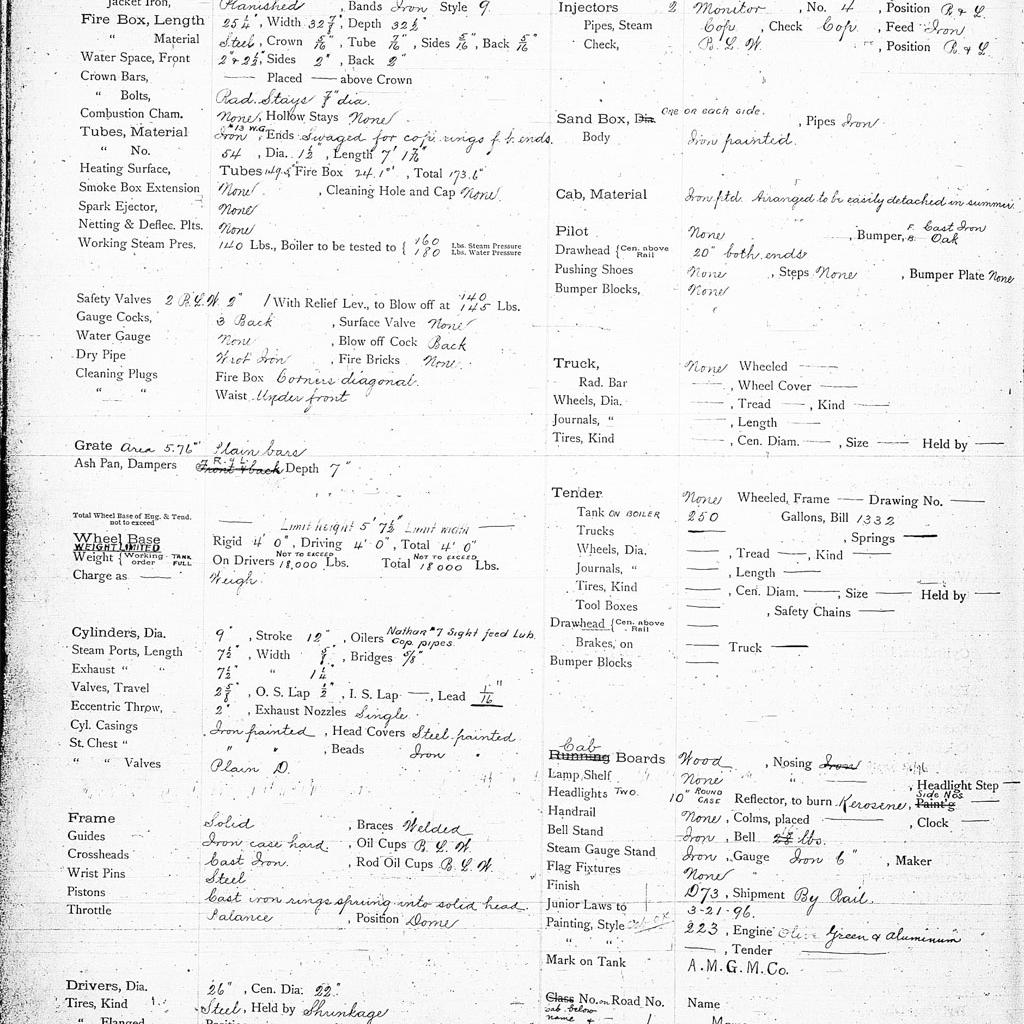 Jacket Iron, Planished , Bands Iron Style 9
Fire Box, Length 25 1/4" , Width 32 7/8" Depth 32 1/2"
" Material Steel , Crown 5/16" , Tube 7/16" , Sides 5/16" , Back 5/16"
Water Space, Front 2" & 2 1/2", Sides 2" , Back 2"
Crown Bars, —— Placed —— above Crown
" Bolts, Rad. Stays 7/8" dia.
Combustion Cham. None, Hollow Stays None
Tubes, Material Iron #13 W.G. , Ends Swaged for cop. rings f. b. ends.
" No. 54 , Dia. 1 1/2" , Length 7' 1 7/16"
Heating Surface, Tubes 149.5 Fire Box 24.1 , Total 173.6
Smoke Box Extension None , Cleaning Hole and Cap None
Spark Ejector, None
Netting & Deflec. Plts. None
Working Steam Pres. 140 Lbs., Boiler to be tested to { 160 Lbs. Steam Pressure
180 Lbs. Water Pressure
Safety Valves 2 B.L.W. 2" / With Relief Lev., to Blow off at 140
145 Lbs.
Gauge Cocks, 3 Back , Surface Valve None
Water Gauge None , Blow off Cock Back
Dry Pipe Wrot Iron , Fire Bricks None
Cleaning Plugs Fire Box Corners diagonal.
" " Waist Under front
Grate Area 5.76 Plain bars
Ash Pan, Dampers R. & L. Front & back Depth 7"
Total Wheel Base of Eng. & Tend.
not to exceed —— Limit height 5' 7 1/2" Limit width ——
Wheel Base Rigid 4' 0" , Driving 4' 0" , Total 4' 0"
WEIGHT LIMITED
Weight { Working order TANK FULL On Drivers NOT TO EXCEED 18,000 Lbs. Total NOT TO EXCEED 18000 Lbs.
Charge as —— Weigh.
Cylinders, Dia. 9" , Stroke 12" , Oilers Nathan #7 Sight feed Lub.
Cop. pipes
Steam Ports, Length 7 1/2" , Width 5/8" , Bridges 5/8"
Exhaust " " 7 1/2" " 1 1/4"
Valves, Travel 2 5/8" , O. S. Lap 1/2" , I. S. Lap —— , Lead 1/16"
Eccentric Throw, 2" , Exhaust Nozzles Single
Cyl. Casings Iron painted , Head Covers Steel painted
St. Chest " " " , Beads Iron "
" " Valves Plain D.
Frame Solid , Braces Welded
Guides Iron case hard. , Oil Cups B. L. W.
Crossheads Cast Iron. , Rod Oil Cups B. L. W.
Wrist Pins Steel
Pistons Cast iron rings sprung into solid head.
Throttle Balance , Position Dome
Drivers, Dia. 26" , Cen. Dia. 22"
Tires, Kind Steel , Held by Shrinkage
" Flanged
Injectors 2 Monitor , No. 4 , Position R. & L.
Pipes, Steam Cop. , Check Cop. , Feed Iron
Check, B. L. W. , Position R. & L.
Sand Box, Dia. One on each side. , Pipes Iron
Body Iron painted.
Cab, Material Iron ptd. Arranged to be easily detached in summer.
Pilot None , Bumper, F. Cast Iron
B. Oak
Drawhead { Cen. above Rail 20" both ends
Pushing Shoes None , Steps None , Bumper Plate None
Bumper Blocks, None
Truck, None Wheeled ——
Rad. Bar —— , Wheel Cover ——
Wheels, Dia. —— , Tread —— , Kind ——
Journals, " —— , Length ——
Tires, Kind —— , Cen. Diam. —— , Size —— Held by ——
Tender None Wheeled, Frame —— Drawing No. ——
Tank ON BOILER 250 Gallons, Bill 1332
Trucks —— , Springs ——
Wheels, Dia. —— , Tread —— , Kind ——
Journals, " —— , Length ——
Tires, Kind —— , Cen. Diam. —— , Size —— Held by ——
Tool Boxes —— , Safety Chains ——
Drawhead { Cen. above Rail ——
Brakes, on —— Truck ——
Bumper Blocks ——
Cab
Running Boards Wood , Nosing Iron
Lamp Shelf None " , Headlight Step ——
Headlights Two. 10" ROUND CASE Reflector, to burn Kerosene, Side Nos Paint'g ——
Handrail None , Colms, placed —— , Clock ——
Bell Stand Iron , Bell lbs.
Steam Gauge Stand Iron , Gauge Iron 6" , Maker
Flag Fixtures None "
Finish D73 , Shipment By Rail.
Junior Laws to 3-21-96.
Painting, Style 223 , Engine Olive Green & Aluminum
" " —— , Tender ——
Mark on Tank A.M.G.M.Co.
Class No. on Road No. Name
cab below
name &